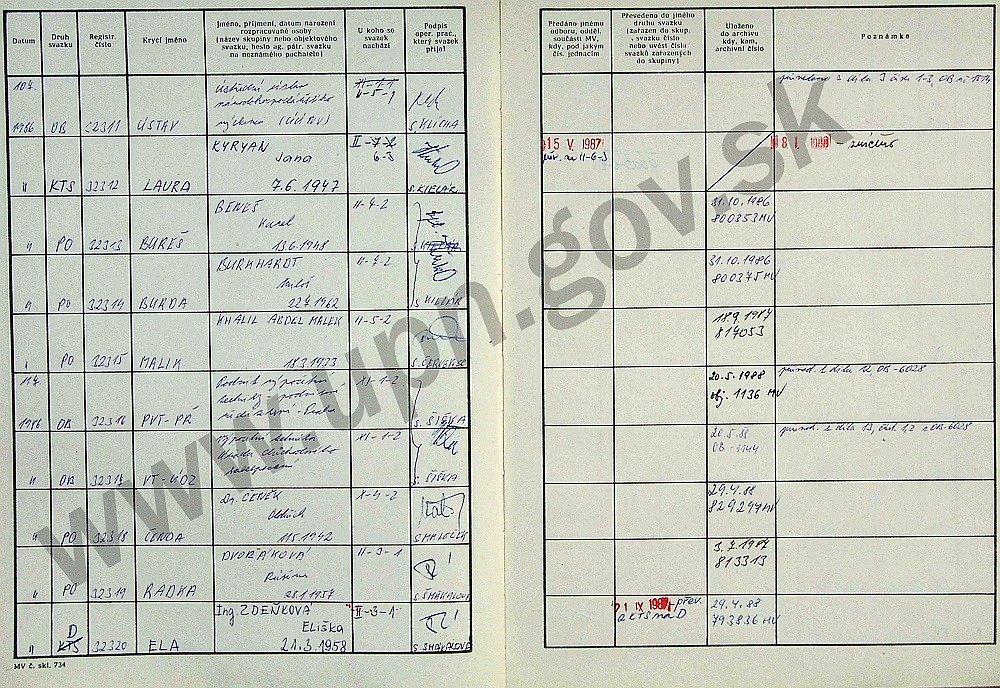 Datum
Druh svazku
Registr. číslo
Krycí jméno
Jméno, příjmení, datum narození
rozpracované osoby
(název skupiny nebo objektového
svazku, heslo ag. pátr. svazku
na neznámého pachatele)
U koho se
svazek
nachází
Podpis
oper. prac.,
který svazek
přijal
Předáno jinému
odboru, odděl.
součásti MV,
kdy, pod jakým
čís. jednacím
Převedeno do jiného
druhu svazku
(zařazen do skup.
svazku číslo
nebo uvést číslo
svazků zařazených
do skupiny)
Uloženo
do archivu
kdy, kam,
archivní číslo
Poznámka
10.7.
1986 OB 32311 ÚSTAV
Ústřední ústav
národohospodářského
výzkumu (ÚÚNV)
II-5-1
S. KLICHA
" KTS 32312 LAURA
KYRYAN
Jana
7.6.1947
II-7-2
6-3
S. KIELÁR
15 V. 1987
II-6-3
8 I. 1988 - zničeno
" PO 32313 BUREŠ
BENEŠ
Karel
13.6.1948
II-4-2
31.10.1986
800353 MV
" PO 32314 BURDA
BURKHARDT
Miloš
22.7.1962
II-7-2
S. KIELÁR
31.10.1986
800375 MV
PO 32315 MALIK
KHALIL ABDEL MALEK
18.3.1933
II-5-2
18.9.1987
817053
11.7.
1986 OB 32316 PVT-PŘ
Podnik výpočetní
techniky - podnikové
ředitelství - Praha
XI-1-2
S. ŠIŠKA
20.5.1988
obj. 1136 MV
převed. k dílu 12, OB-6028
" OB 32317 VT-ÚOZ
Výpočetní technika
Úřadu důchodového
zabezpečení
XI-1-2
S. ŠIŠKA
20.5.88
OB-1144
" PO 32318 ČENDA
Dr. ČENĚK
Oldřich
11.5.1942
X-4-2
29.4.88
829294 MV
" PO 32319 RADKA
DVOŘÁKOVÁ
Růžena
25.1.1957
II-3-1
S. ŠMAKALOVÁ
3.7.1987
813313
D
" KTS 32320 ELA
Ing. ZDEŇKOVÁ
Eliška
21.3.1958
II-3-1
S. ŠMAKALOVÁ
21 IX 1987 přev.
z KTS na D
29.4.88
793836 MV
MV č. skl. 734
www.upn.gov.sk